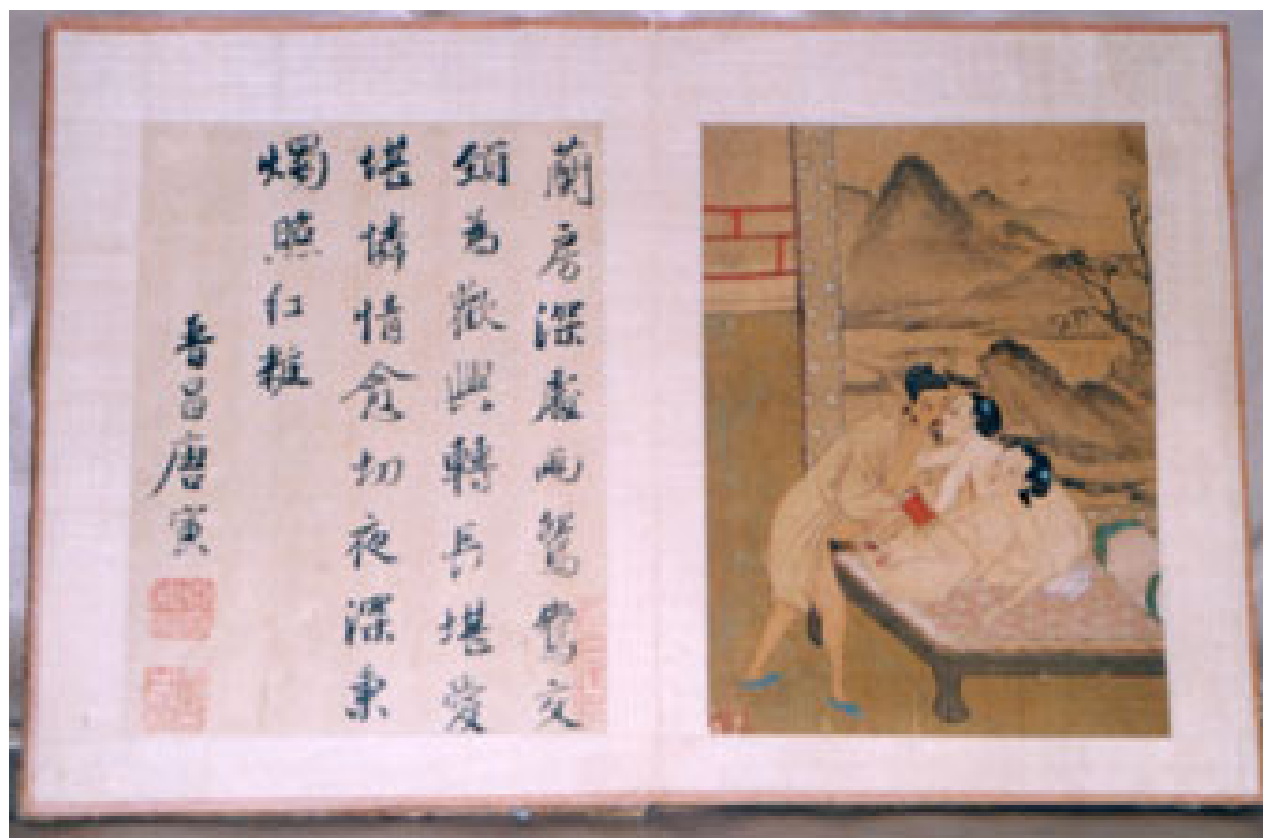 蘭房深處兩鴛鴦交
頸為歡興轉長堪愛
堪憐情念切夜深秉
燭照紅粧
晉昌唐寅